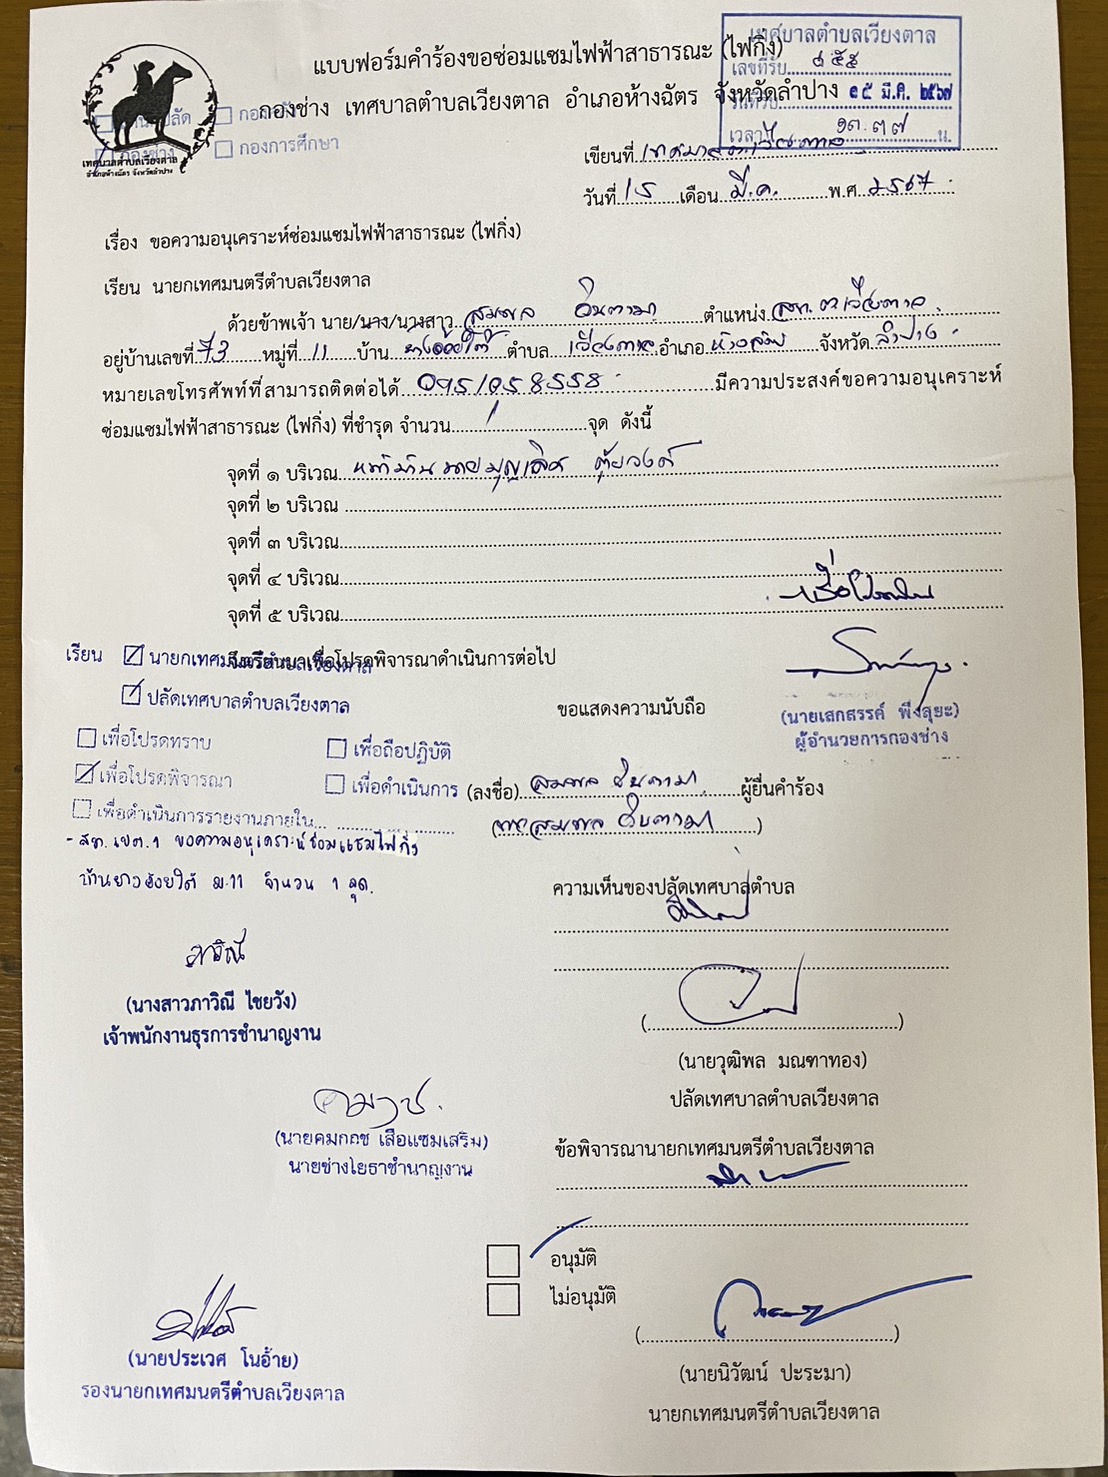 แบบฟอร์มคำร้องขอซ่อมแซมไฟฟ้าสาธารณะ (ไฟกิ่ง)
กองช่าง เทศบาลตำบลเวียงตาล อำเภอห้างฉัตร จังหวัดลำปาง
เทศบาลตำบลเวียงตาล
เลขที่รับ
๑๕ มี.ค. ๒๕๖๗
เวลา ๑๓.๓๗ น.
กองการศึกษา
กองช่าง
เทศบาลตำบลเวียงตาล
อำเภอห้างฉัตร จังหวัดลำปาง
เขียนที่
วันที่ 15 เดือน มี.ค. พ.ศ. 2567
เรื่อง ขอความอนุเคราะห์ซ่อมแซมไฟฟ้าสาธารณะ (ไฟกิ่ง)
เรียน นายกเทศมนตรีตำบลเวียงตาล
ด้วยข้าพเจ้า นาย/นาง/นางสาว สมพล อินตามา ตำแหน่ง สท.ต.เวียงตาล
อยู่บ้านเลขที่ 73 หมู่ที่ 11 บ้าน ยางอ้อยใต้ ตำบล เวียงตาล อำเภอ ห้างฉัตร จังหวัด ลำปาง
หมายเลขโทรศัพท์ที่สามารถติดต่อได้ 0951058558 มีความประสงค์ขอความอนุเคราะห์
ซ่อมแซมไฟฟ้าสาธารณะ (ไฟกิ่ง) ที่ชำรุด จำนวน 1 จุด ดังนี้
จุดที่ ๑ บริเวณ หน้าบ้านนายบุญเลิศ
จุดที่ ๒ บริเวณ
จุดที่ ๓ บริเวณ
จุดที่ ๔ บริเวณ
จุดที่ ๕ บริเวณ
เพื่อโปรดพิจารณา
จึงเรียนมาเพื่อโปรดพิจารณาดำเนินการต่อไป
เรียน นายกเทศมนตรีตำบลเวียงตาล
ปลัดเทศบาลตำบลเวียงตาล
ขอแสดงความนับถือ
(นายเสกสรรค์ พึงสุยะ)
ผู้อำนวยการกองช่าง
เพื่อโปรดทราบ เพื่อถือปฏิบัติ
เพื่อโปรดพิจารณา เพื่อดำเนินการ
(ลงชื่อ) สมพล อินตามา ผู้ยื่นคำร้อง
เพื่อดำเนินการรายงานภายใน
(นายสมพล อินตามา)
- สท.เขต.1 ขอความอนุเคราะห์ซ่อมแซมไฟกิ่ง
บ้านยางอ้อยใต้ ม.11 จำนวน 1 จุด.
ความเห็นของปลัดเทศบาลตำบล
ภาวิณี
(นางสาวภาวิณี ไชยวัง)
เจ้าพนักงานธุรการชำนาญงาน
(นายวุฒิพล มณฑาทอง)
ปลัดเทศบาลตำบลเวียงตาล
(นายคมกฤช เสือแซมเสริม)
นายช่างโยธาชำนาญงาน
ข้อพิจารณานายกเทศมนตรีตำบลเวียงตาล
อนุมัติ
ไม่อนุมัติ
(นายประเวศ โนอ้าย)
รองนายกเทศมนตรีตำบลเวียงตาล
(นายนิวัฒน์ ปะระมา)
นายกเทศมนตรีตำบลเวียงตาล